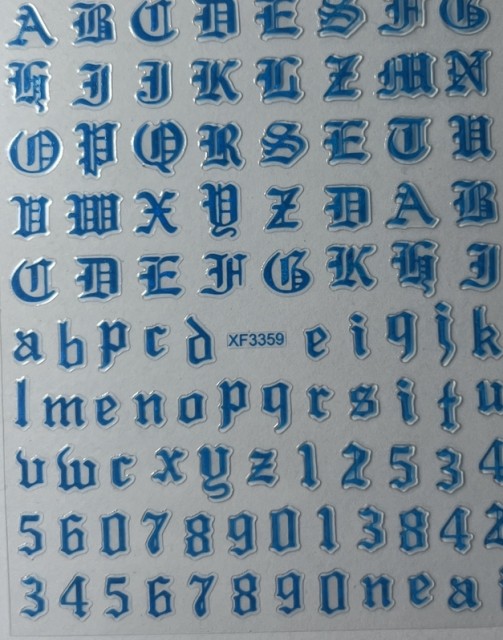 A B C D E S F G
H I J K L Z M N
O P Q R S E T U
V W X Y Z D A B
C D E F G K H I
a b p c d XF3359 e i q j k
l m e n o p q r s i t u
v w c x y z 1 2 5 3 4
5 6 0 7 8 9 0 1 3 8 4 2
3 4 5 6 7 8 9 0 n e a